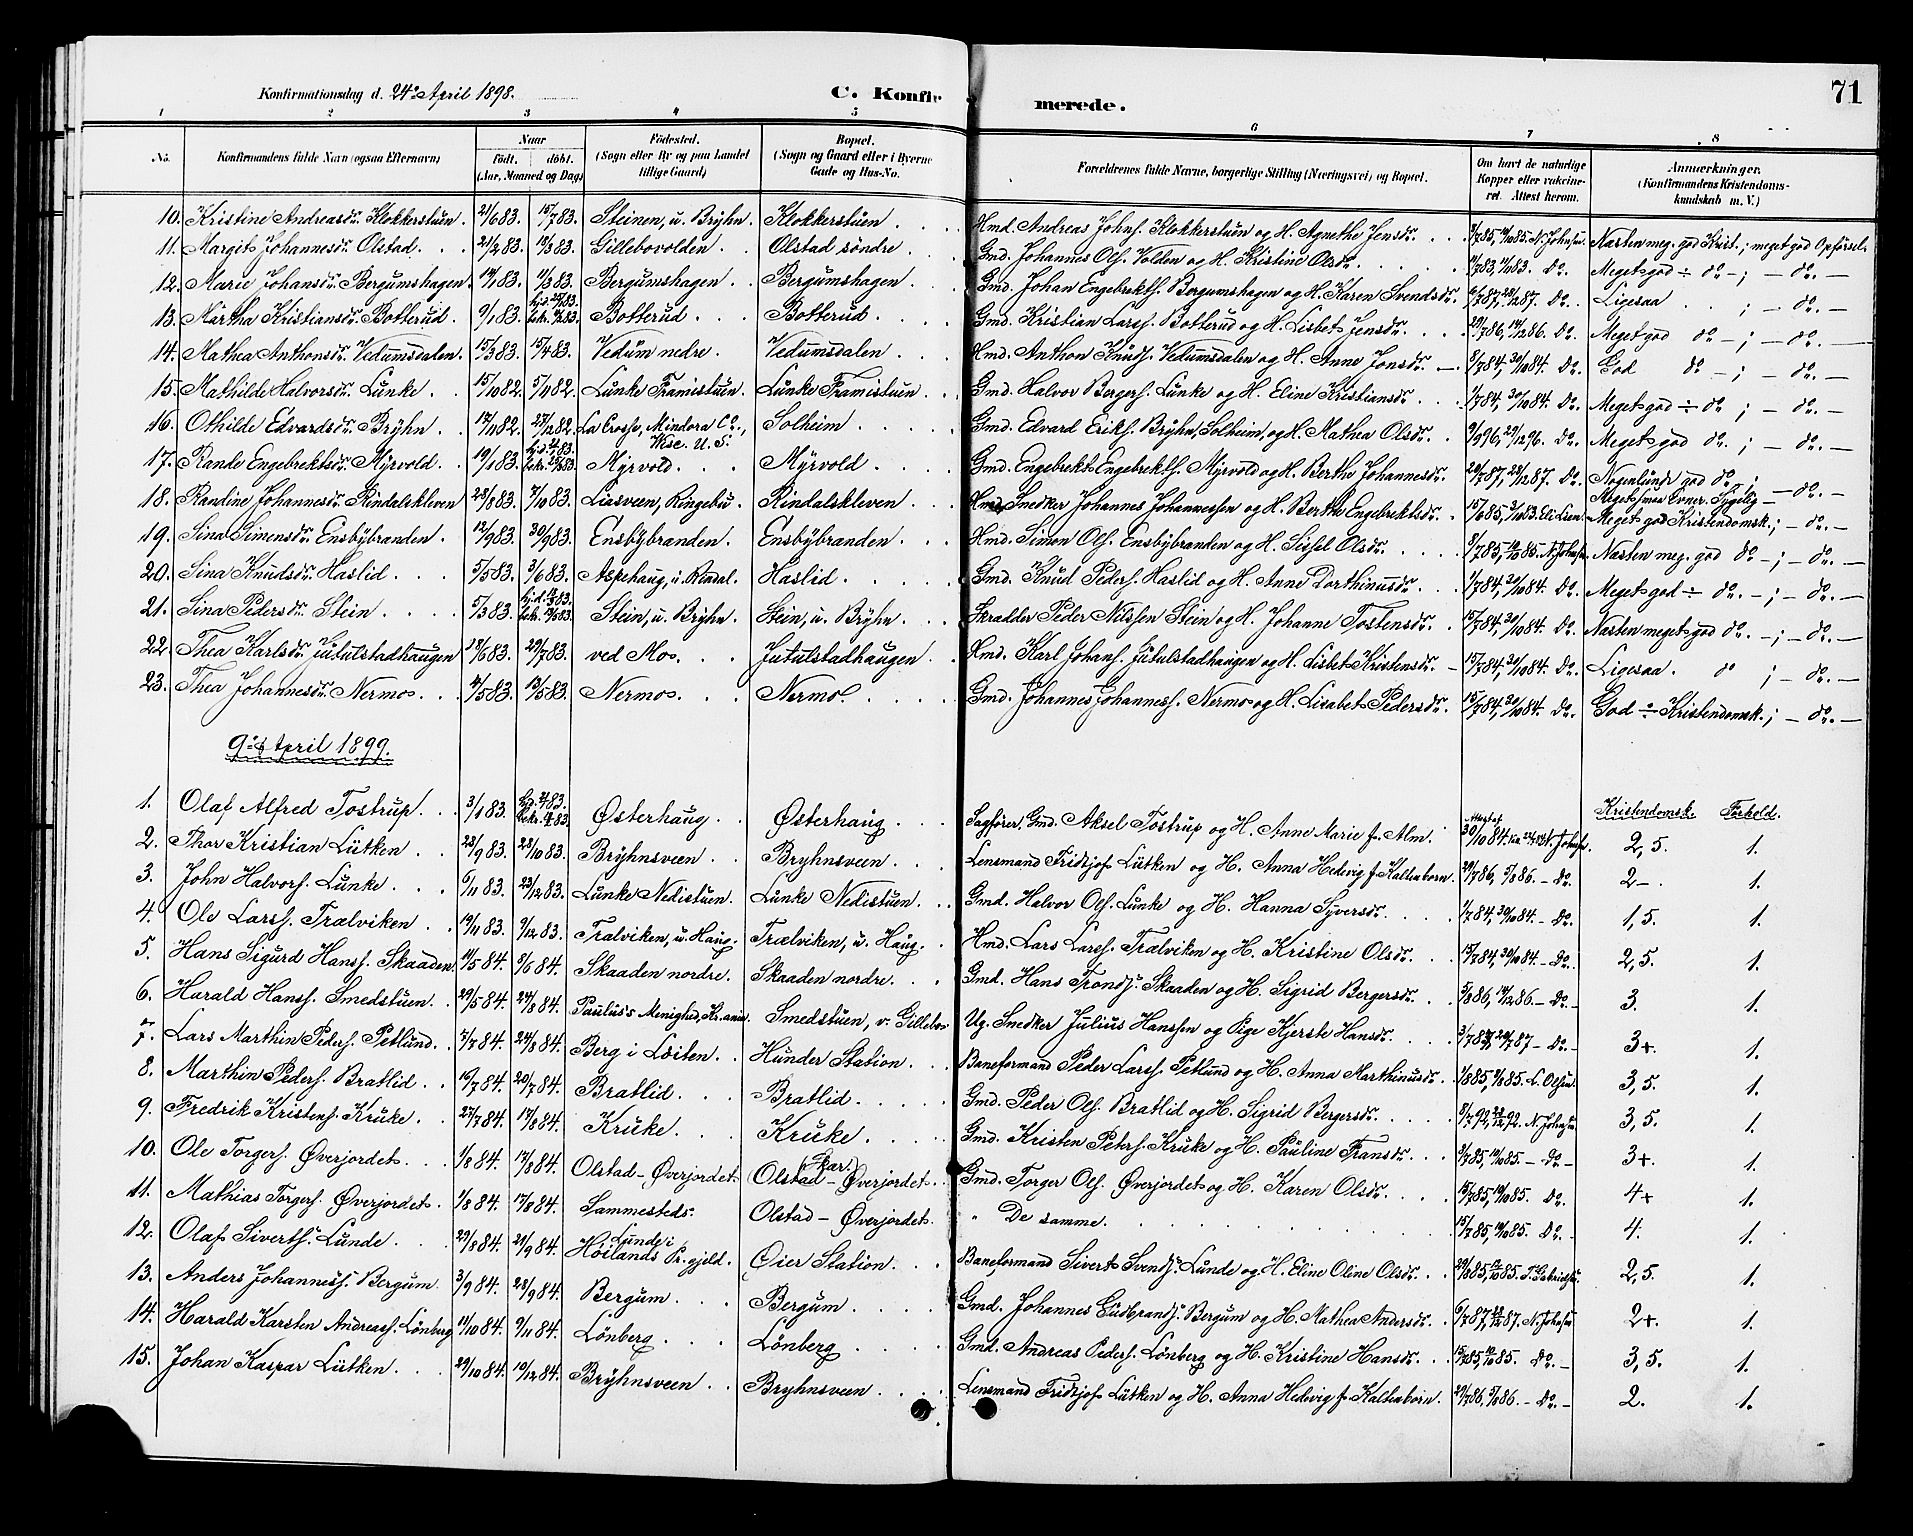 Konfirmationsdag d. 24de April 1898. C. Konfir merede. 71
1 2 3 4 5 6 7 8
No. Konfirmandens fulde Navn (ogsaa Efternavn) Naar født. døbt. (Aar, Maaned og Dag) Fødested. (Sogn eller By og paa Landet tillige Gaard) Bopæl. (Sogn og Gaard eller i Byerne Gade og Hus-No. Forældrenes fulde Navne, borgerlige Stilling (Næringsvei) og Bopæl. Om havt de naturlige Kopper eller vakcineret. Attest herom. Anmærkninger. (Konfirmandens Kristendomskundskab m. V.)
10. Kristine Andreasdr. Klokkerstuen. 21/6 83. 15/7 83. Steinen, u. Brÿhn. Klokkerstuen Hmd. Andreas Johns. Klokkerstuen og H. Agnethe Jensdr. N. Johnsen Næsten meg. god Krist.; meget god Opførsel.
11. Margit Johannesdr. Olstad. 21/2 83. Gillebovolden Olstad söndre Gmd. Johannes Ols. Volden og H. Kristine Olsdr. Do. Meget god ÷ do -; - do. -
12. Marie Johansdr. Bergumshagen. 11/3 83. Bergumshagen Bergumshagen Gmd. Johan Engebrekts. Bergumshagen og H. Karen Svendsdr. Do. Ligesaa ; - do. -
13. Martha Kristiansdr. Botterud. 9/1 83. Botterud Botterud Gmd. Kristian Larss. Botterud og H. Lisbet Jensdr. Do. Meget god do -; - do. -
14. Mathea Anthonsdr. Vedumsdalen. 15/3 83. 15/4 83. Vedum nedre. Vedumsdalen Hmd. Anthon Knuds. Vedumsdalen og H. Anne Jonsdr. 30/10 84. Do. God do -; - do. -
15. Mathilde Halvorsdr. Lunke 15/10 82. 5/11 82. Lunke Framistuen. Lunke Framistuen Gmd. Halvor Bergers. Lunke og H. Eline Kristiansdr. 1/7 84, 30/10 84. Do. Meget god ÷ do ; - do. -
16. Othilde Edvardsdr. Brÿhn. La Crosse, Mindora Co., Wisc. U. S. Solheim Gmd. Edvard Eriks. Brÿhn, Solheim, og H. Mathea Olsdr. Do. Meget god do. ; - do. -
17. Rande Engebrektsdr. Mÿrvold. 19/1 83. Mÿrvold. Mÿrvold Gmd. Engebrekt Engebrekts. Mÿrvold og H. Berthe Johannesdr. Do. Nogenlunde god do ; - do. -
18. Randine Johannesdr. Rindalskleven 28/8 83. 7/10 83. Liasveen, Ringebu. Rindalskleven Hmd. Snedker Johannes Johannessen og H. Berthe Engebrektsdr. Meget smaa Evner. Sygelig - Meget god Kristendomsk.; - do. -
19. Sina Simensdr. Ensbÿbranden. 12/9 83. 30/9 83. Ensbÿbranden. Ensbÿbranden Hmd. Simon Ols. Ensbÿbranden og H. Sissel Olsdr. N. Johnsen Næsten meg. god do -; - do. -
20. Sina Knudsdr. Haslid 5/5 83. 3/6 83. Askehaug, u. Rindal. Haslid Gmd. Knud Peders. Haslid og H. Anne Dorthinusdr. 1/7 84, 30/10 84. Do. Meget god ÷ do. -; - do. -
21. Sina Pedersdr. Stein 5/3 83. Stein, u. Brÿhn. Stein, u. Brÿhn. Skrædder Peder Nilssen Stein og H. Johanne Tostensdr. 15/7 84, 30/10 84. Do. Næsten meget god do. -; - do. -
22. Thea Karlsdr. Jutulstadhaugen 29/7 83. ved Mos. Jutulstadhaugen Hmd. Karl Johans. Jutulstadhaugen og H. Lisbet Kristensdr. - 15/7 84, 30/10 84. Do. Ligesaa. do ; - do. -
23. Thea Johannesdr. Nermo. 13/5 83. Nermo. Nermo. Gmd. Johannes Johanness. Nermo og H. Lisabet Pedersdr. 15/7 84, 30/10 84. Do. God ÷ Kristendomsk.; - do. -
9de April 1899.
Kristendomsk. Forhold.
1. Olaf Alfred Tostrup. 3/1 83. Østerhaug Østerhaug Sagfører, Gmd. Aksel Tostrup og H. Anne Marie f. Alm. 30/10 84. N. Johnsen 2,5. 1.
2. Thor Kristian Lütken 23/9 83. 28/10 83. Brÿhnsveen Bryhnsveen Lensmand Fridtjof Lütken og H. Anna Hedevig f. Kaltenborn. - Do. 2-. 1.
3. John Halvors. Lunke. 6/11 83. 23/12 83. Lunke Nedistuen. Lunke Nedistuen. Gmd. Halvor Ols. Lunke og H. Hanna Syversdr. 1/7 84, 30/10 84. - Do. 1,5. 1.
4. Ole Larss. Trælviken 19/11 83. 9/12 83. Trælviken, u. Haug. Trælviken, u. Haug. Hmd. Lars Larss. Trælviken og H. Kristine Olsdr. 15/7 84, 30/10 84. - Do. 2,5. 1.
5. Hans Sigurd Hanss. Skaaden. Skaaden nordre. Skaaden nordre. Gmd. Hans Tronds. Skaaden og H. Sigrid Bergersdr. - Do. - 3. 1.
6. Harald Hanss. Smedstuen. 29/5 84. 24/8 84. Paulus's Menighed, Kr.ania. Smedstuen, v. Gillebo. Ug. Snedker Julius Hanssen og Pige Kjersti Hansdr. - Do. - 3+. 1.
7. Lars Marthin Peders. Petlund. 7/7 84. 24/8 84. Berg i Løiten. Hunder Station Baneformand Peder Larss. Petlund og H. Anna Marthinusdr. L. Olsen. 3,5. 1.
8. Marthin Peders. Bratlid. 16/7 84. 20/7 84. Bratlid. Bratlid. Gmd. Peder Ols. Bratlid og H. Sigrid Bergersdr. N. Johnsen 3,5. 1.
9. Fredrik Kristens. Kruke. 27/7 84. 17/8 84. Kruke. Kruke. Gmd. Kristen Peters. Kruke og H. Pauline Fransdr. - Do - 3+. 1.
10. Ole Torgers. Øverjordet. 1/8 84. 17/8 84. Olstad - Øverjordet Olstad - Øverjordet. (Skar.) Gmd. Torger Ols. Øverjordet og H. Karen Olsdr. Do. 4+ 1.
11. Mathias Torgers. Øverjordet. 1/8 84. 17/8 84. Sammesteds. Olstad - Øverjordet. " De samme. Do. - 4. 1.
12. Olaf Siverts. Lunde 29/8 84. 21/9 84. Lunde i Høilands Pr.gjeld. Øier Station Baneformand Sivert Svends. Lunde og H. Eline Oline Olsdr. 2,5. 1.
13. Anders Johanness. Bergum. 3/9 84. 28/9 84. Bergum. Bergum Gmd. Johannes Gudbrands. Bergum og H. Mathea Andersdr. N. Johnsen 2+. 1.
14. Harald Karsten Andreass. Lönberg 11/10 84. 9/11 84. Lönberg Lönberg Gmd. Andreas Peders. Lönberg og H. Kristine Hansdr. Do. - 3,5. 1.
15. Johan Kaspar Lütken. 29/10 84. 10/12 84. Brÿhnsveen Bryhnsveen Lensmand Fridtjof Lütken og H. Anna Hedevig f. Kaltenborn. - Do. - 2. 1.